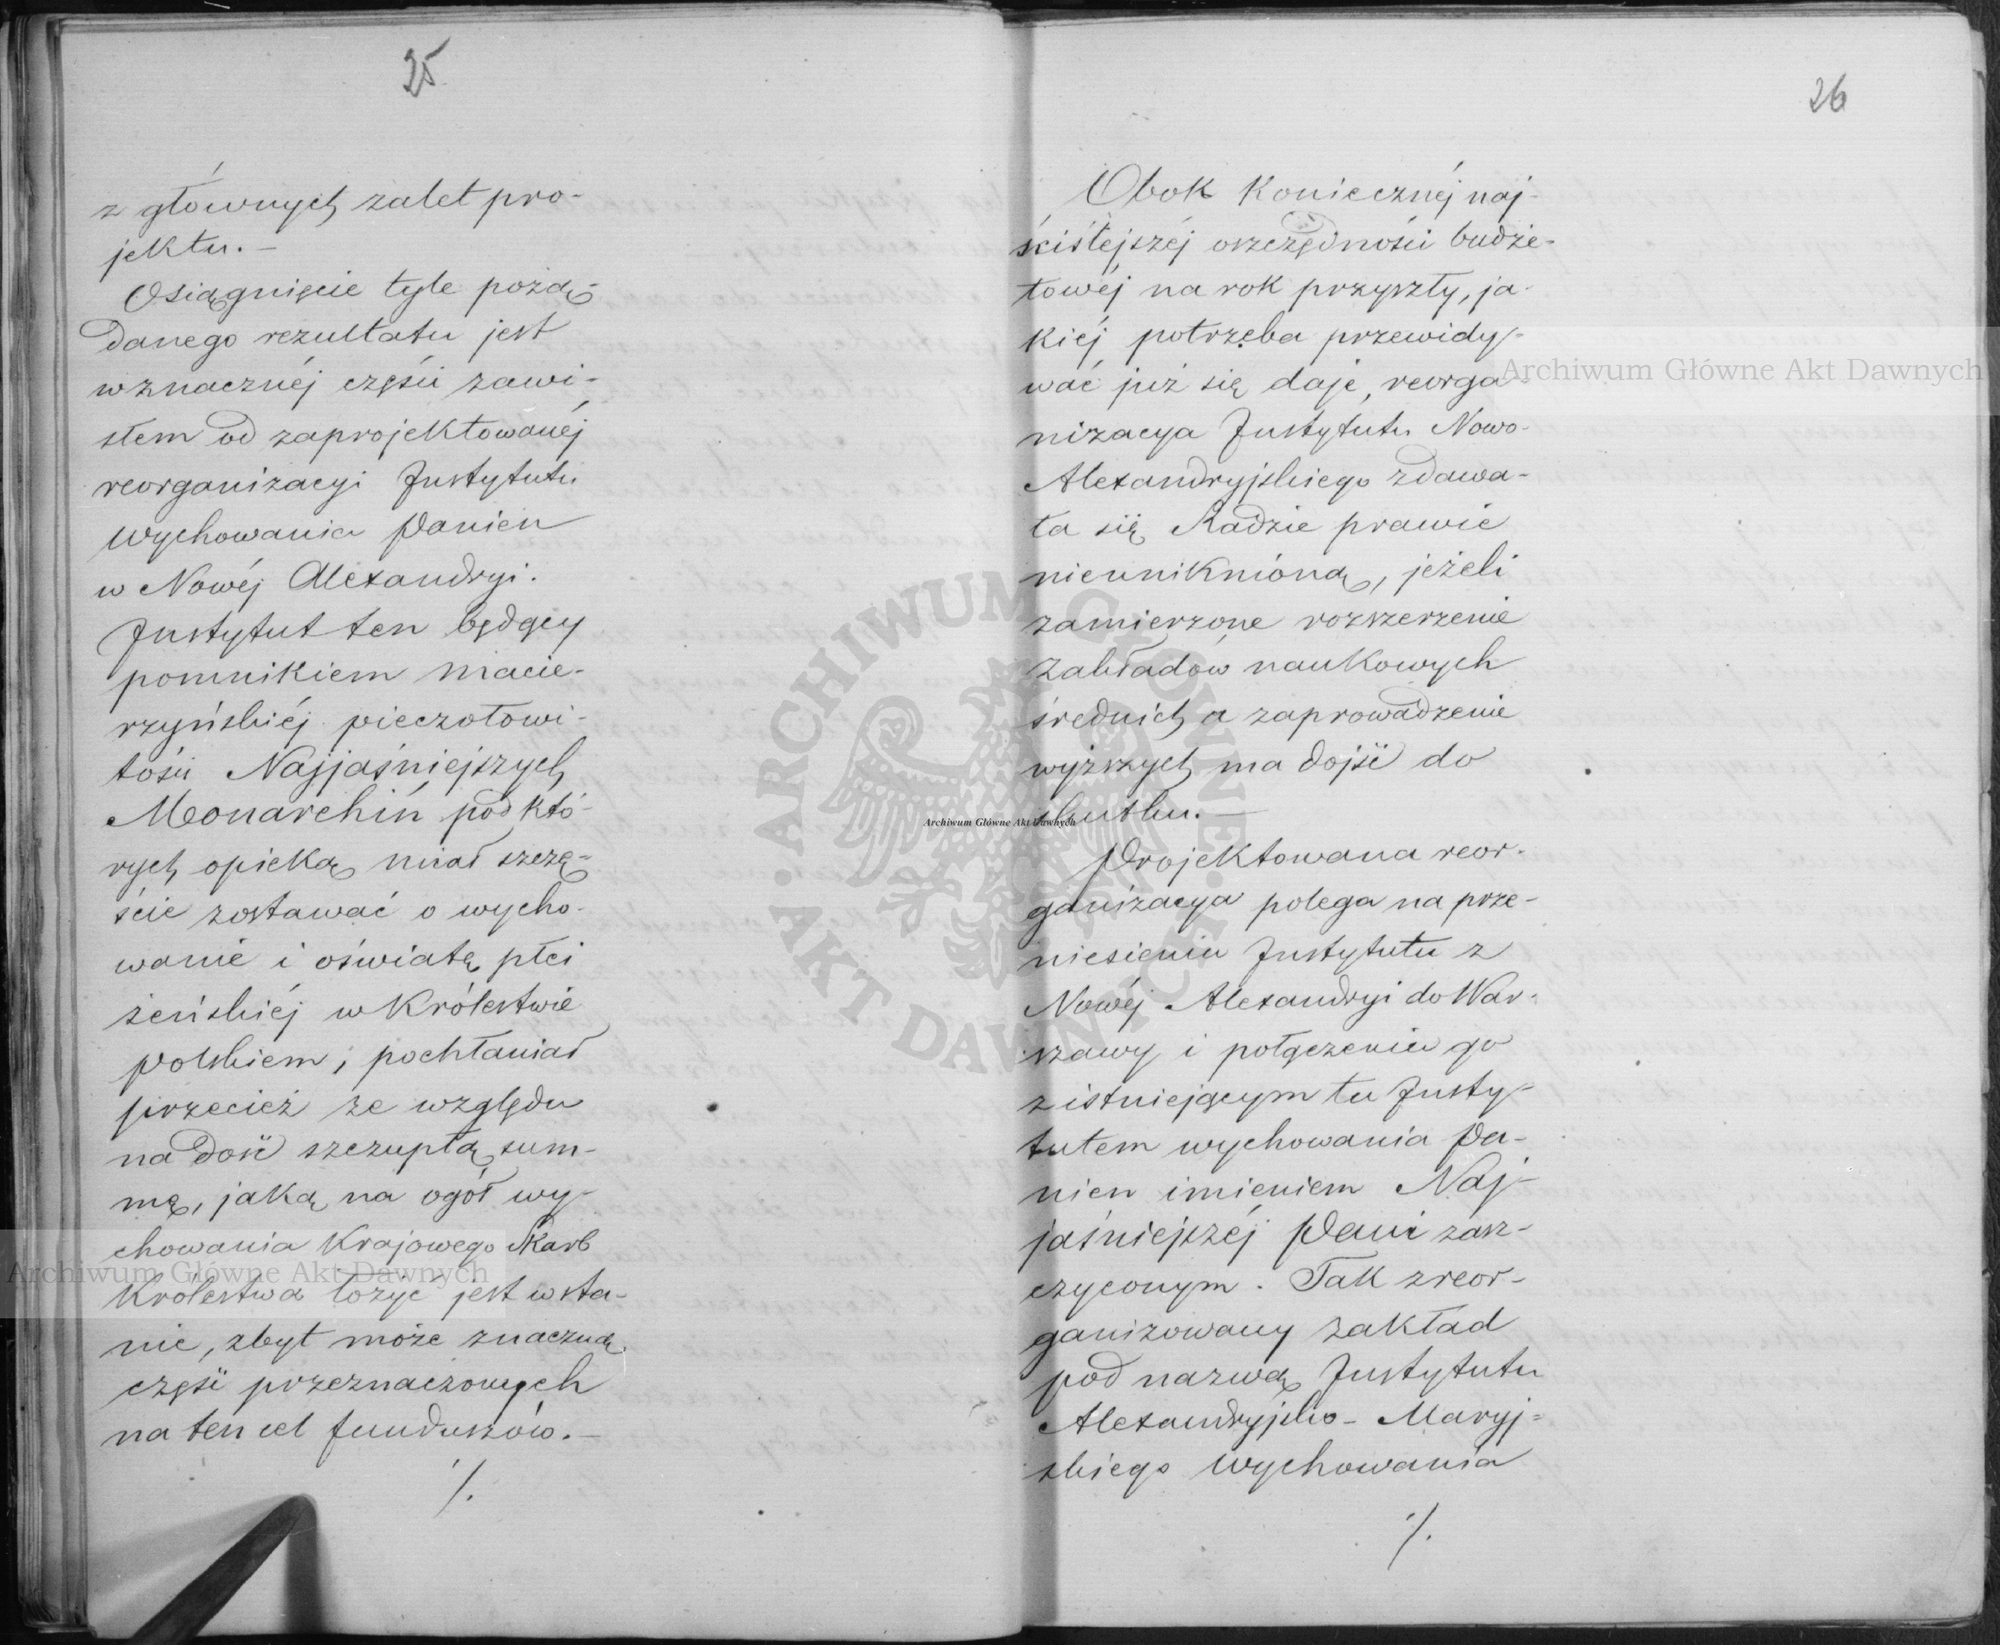 25
z głównych zalet pro-
jektu.—
Osiągnięcie tyle pożą-
danego rezultatu jest
w znacznéj części zawi-
słem od zaprojektowanéj
reorganizacyi Instytutu
Wychowania Panien
w Nowéj Alexandryi.
Instytut ten będący
pomnikiem macie-
rzyńskiéj pieczołowi-
tości Najjaśniejszych
Monarchiń, pod któ-
rych opieką miał szczę-
ście zostawać o wycho-
wanie i oświatę płci
żeńskiéj w Królestwie
Polskiem, pochłaniał
przecież ze względu
na dość szczupłą sum-
mę, jaką na ogół wy-
chowania Krajowego Skarb
Królestwa łożyć jest w sta-
nie, zbyt może znaczną
część przeznaczonych
na ten cel funduszów.—
./.
26
Obok koniecznéj naj-
ściślejszéj oszczędności budże-
towéj na rok przyszły, ja-
kiéj potrzeba przewidy-
wać już się daje, reorga-
nizacya Instytutu Nowo-
Alexandryjskiego zdawa-
ła się Radzie prawie
nieuniknioną, jeżeli
zamierzone rozszerzenie
zakładów naukowych
średnich a zaprowadzenie
wyższych ma dojść do
skutku.—
Projektowana reor-
ganizacya polega na prze-
niesieniu Instytutu z
Nowéj Alexandryi do War-
szawy i połączeniu go
z istniejącym tu Insty-
tutem wychowania Pa-
nien imieniem Naj-
jaśniejszéj Pani zasz-
czyconym. Tak zreor-
ganizowany zakład
pod nazwą Instytutu
Alexandryjsko-Maryj-
skiego Wychowania
./.
Archiwum Główne Akt Dawnych
Archiwum Główne Akt Dawnych
Archiwum Główne Akt Dawnych
ARCHIWUM GŁÓWNE AKT DAWNYCH